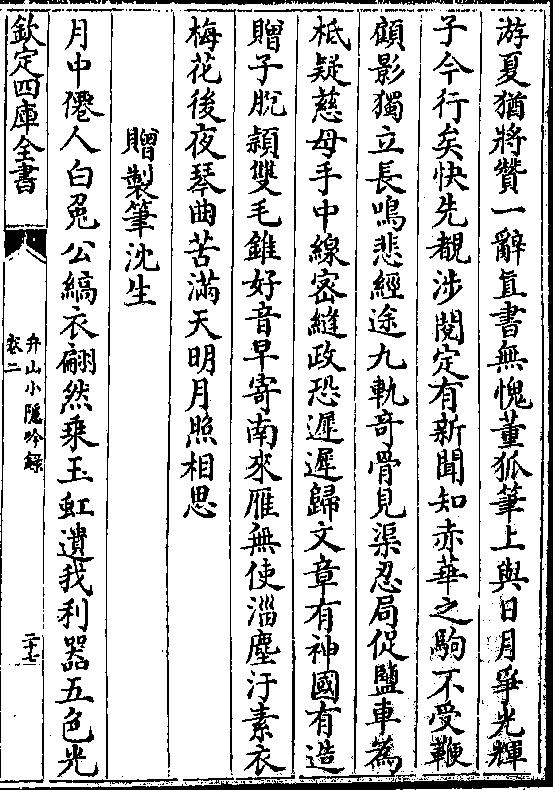 游夏猶將贊一辭直書無愧董狐筆上與日月爭光輝
子今行矣快先覩涉閱定有新聞知赤華之駒不受鞭
顧影獨立長鳴悲經途九軌竒骨見渠忍局促鹽車為
柢疑慈母手中線密縫政恐遲遲歸文章有神國有造
贈子脫穎雙毛錐好音早寄南來雁無使淄塵汙素衣
梅花後夜琴曲苦滿天明月照相思
贈製筆沈生
月中僊人白兎公縞衣翩然乗玉虹遺我利器五色光
欽定四庫全書
弁山小隱吟録
卷二
二十七